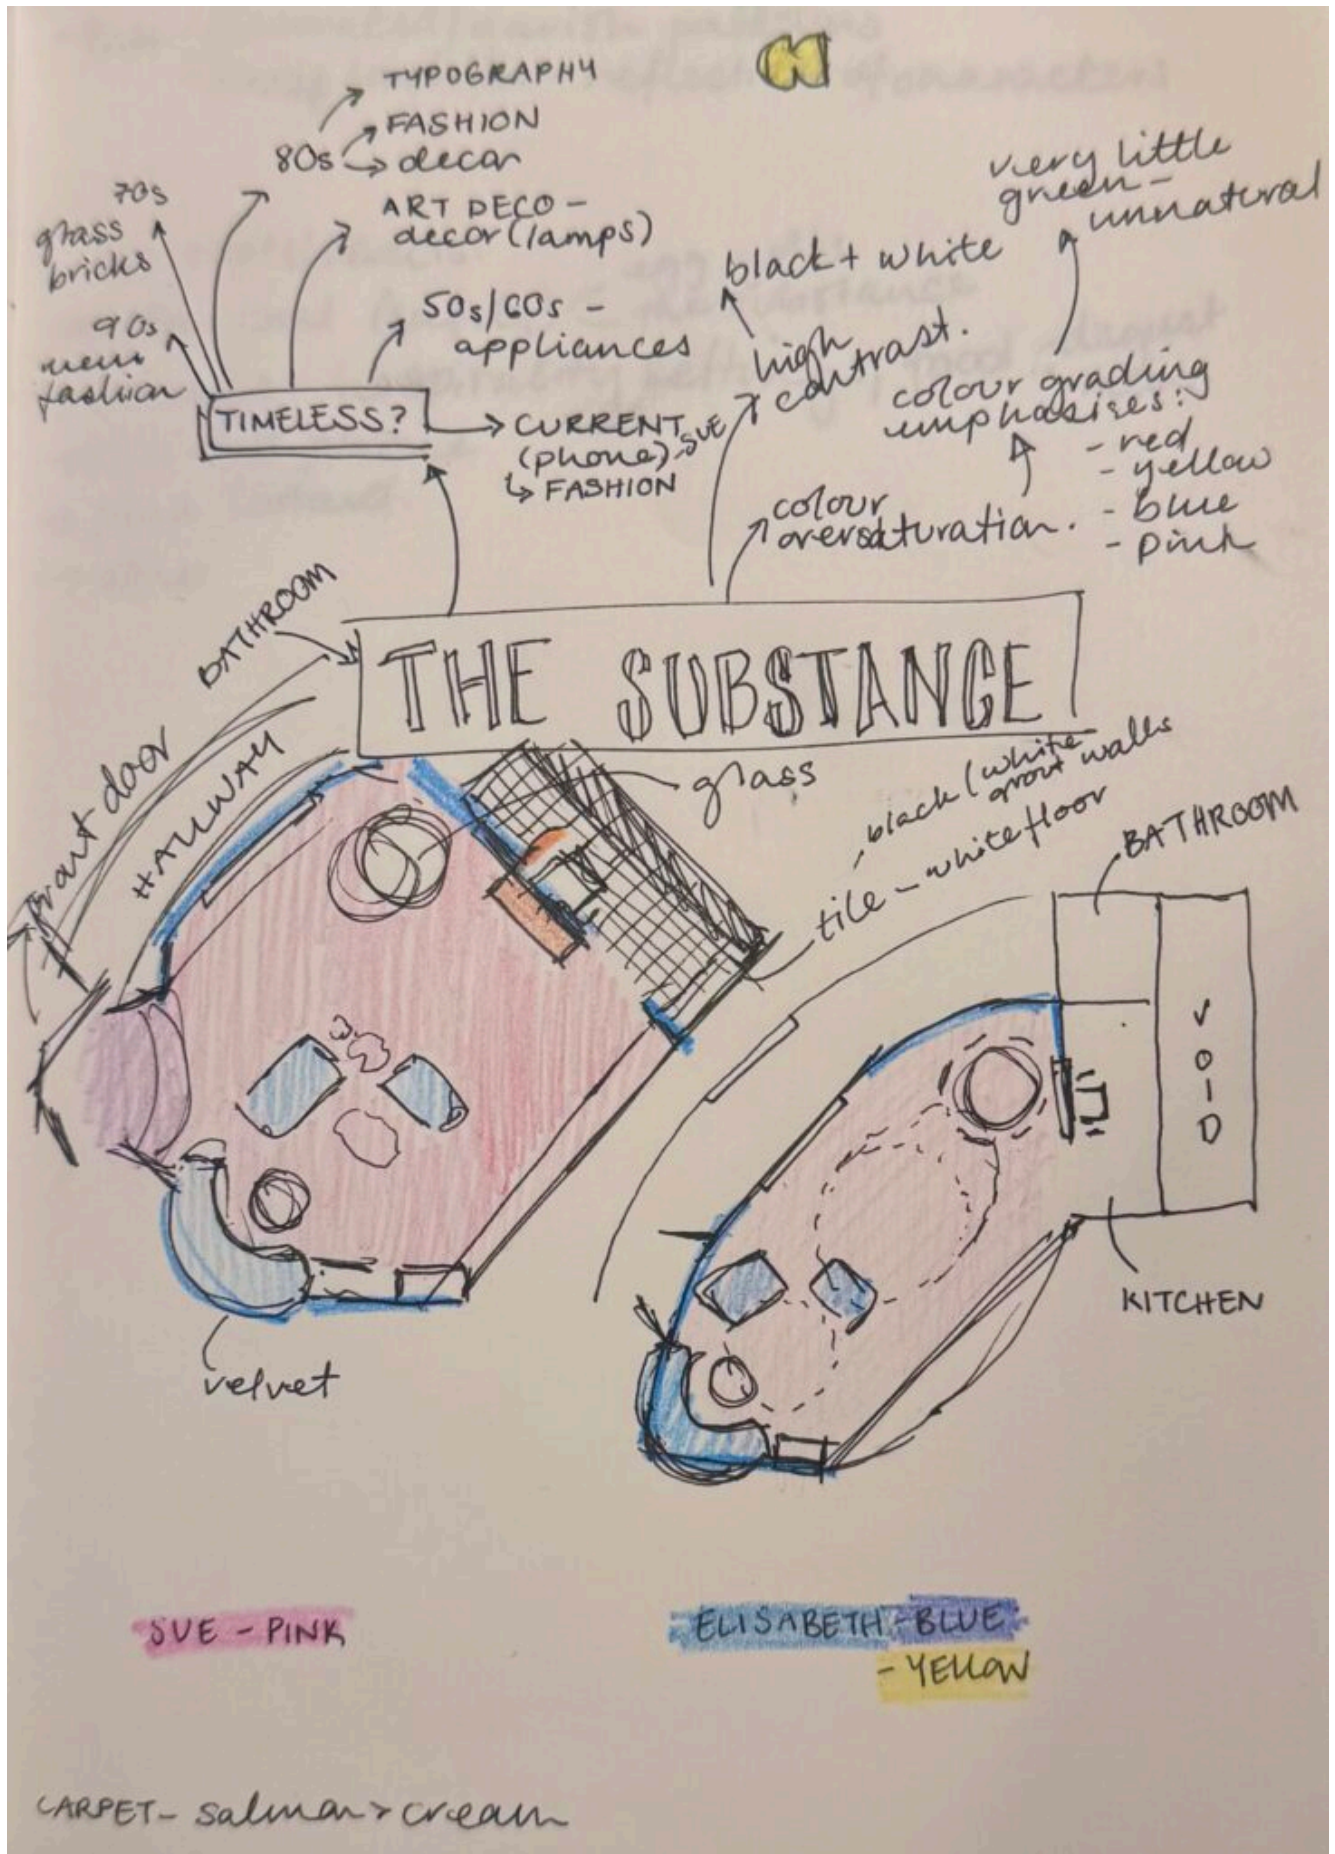 TYPOGRAPHY
FASHION
80s
decor
70s
glass
bricks
ART DECO -
decor (lamps)
90s
mens
fashion
50s/60s -
appliances
TIMELESS?
CURRENT
(phone) - SUE
FASHION
very little
green -
unnatural
black + white
high
contrast.
colour grading
emphasises:
- red
- yellow
- blue
- pink
colour
oversaturation.
BATHROOM
THE SUBSTANCE
front door
HALLWAY
glass
black (white
grout walls
tile - white floor
BATHROOM
VOID
KITCHEN
velvet
SUE - PINK
ELISABETH - BLUE
- YELLOW
CARPET - salmon > cream